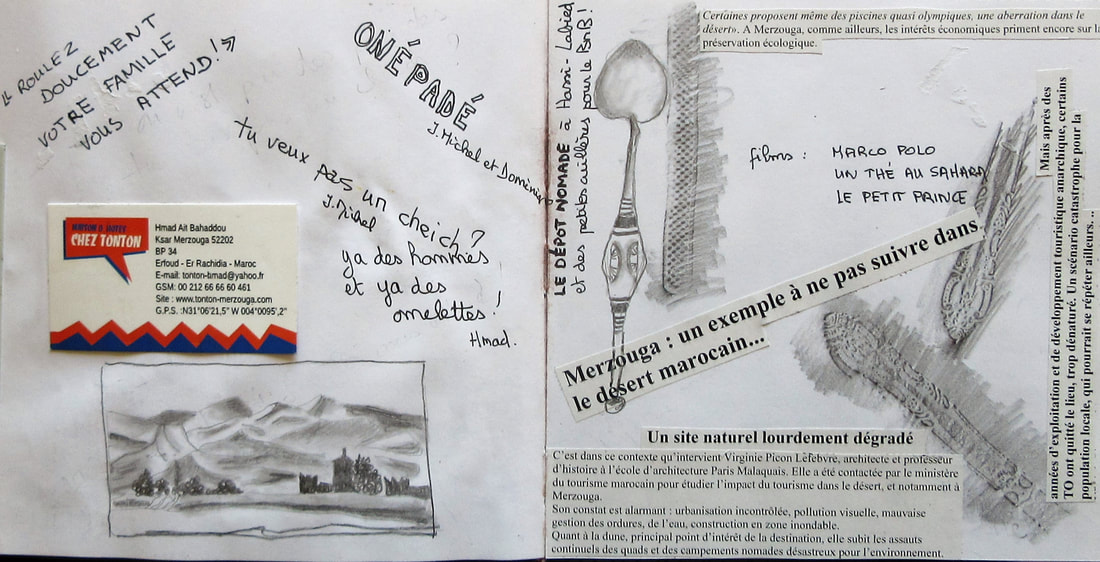 "ROULEZ
DOUCEMENT
VOTRE FAMILLE
VOUS ATTEND!"
ONÉ PADÉ
J. Michel et Dominique
tu veux pas un cheich?
J. Michel
ya des hommes
et ya des
omelettes!
Hmad.
MAISON D'HOTES
CHEZ TONTON
Hmad Ait Bahaddou
Ksar Merzouga 52202
BP 34
Erfoud - Er Rachidia - Maroc
E-mail: tonton-hmad@yahoo.fr
GSM: 00 212 66 66 60 461
Site : www.tonton-merzouga.com
G.P.S. :N31°06'21,5" W 004°0095',2"
LE DÉPOT NOMADE à Hassi-Labied
et des petites cuillères pour le BnB!
Certaines proposent même des piscines quasi olympiques, une aberration dans le
désert». A Merzouga, comme ailleurs, les intérêts économiques priment encore sur la
préservation écologique.
films : MARCO POLO
UN THÉ AU SAHARA
LE PETIT PRINCE
Merzouga : un exemple à ne pas suivre dans
le désert marocain...
Mais après des
années d'exploitation et de développement touristique anarchique, certains
TO ont quitté le lieu, trop dénaturé. Un scénario catastrophe pour la
population locale, qui pourrait se répéter ailleurs...
Un site naturel lourdement dégradé
C'est dans ce contexte qu'intervient Virginie Picon Lefebvre, architecte et professeur
d'histoire à l'école d'architecture Paris Malaquais. Elle a été contactée par le ministère
du tourisme marocain pour étudier l'impact du tourisme dans le désert, et notamment à
Merzouga.
Son constat est alarmant : urbanisation incontrôlée, pollution visuelle, mauvaise
gestion des ordures, de l'eau, construction en zone inondable.
Quant à la dune, principal point d'intérêt de la destination, elle subit les assauts
continuels des quads et des campements nomades désastreux pour l'environnement.